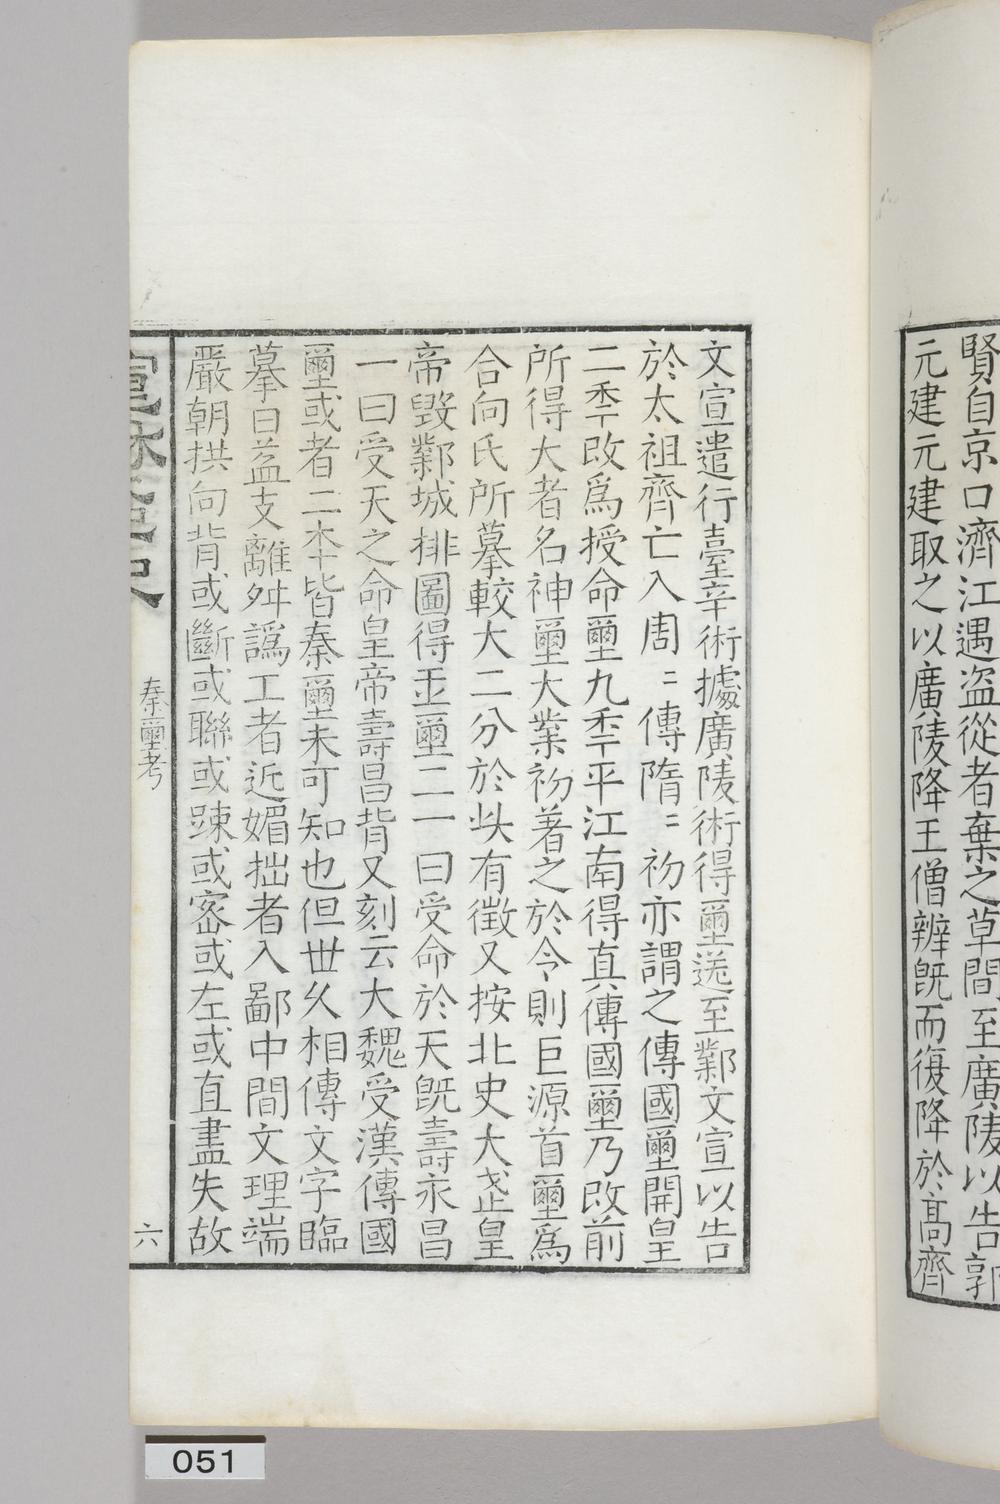 賢自京口濟江遇盜從者棄之草間至廣陵以告郭
元建元建取之以廣陵降王僧辨旣而復降於高齊
文宣遣行臺辛術據廣陵術得璽送至鄴文宣以告
於太祖齊亡入周〻傳隋〻初亦謂之傳國璽開皇
二秊改爲授命璽九秊平江南得真傳國璽乃改前
所得大者名神璽大業初著之於令則巨源首璽爲
合向氏所摹較大二分於此有徵又按北史大武皇
帝毀鄴城排圖得玉璽二一曰受命於天旣壽永昌
一曰受天之命皇帝壽昌背又刻云大魏受漢傳國
璽或者二本皆秦璽未可知也但世久相傳文字臨
摹日益支離舛譌工者近媚拙者入鄙中間文理端
嚴朝拱向背或斷或聯或踈或密或左或直盡失故
秦璽考
六
051